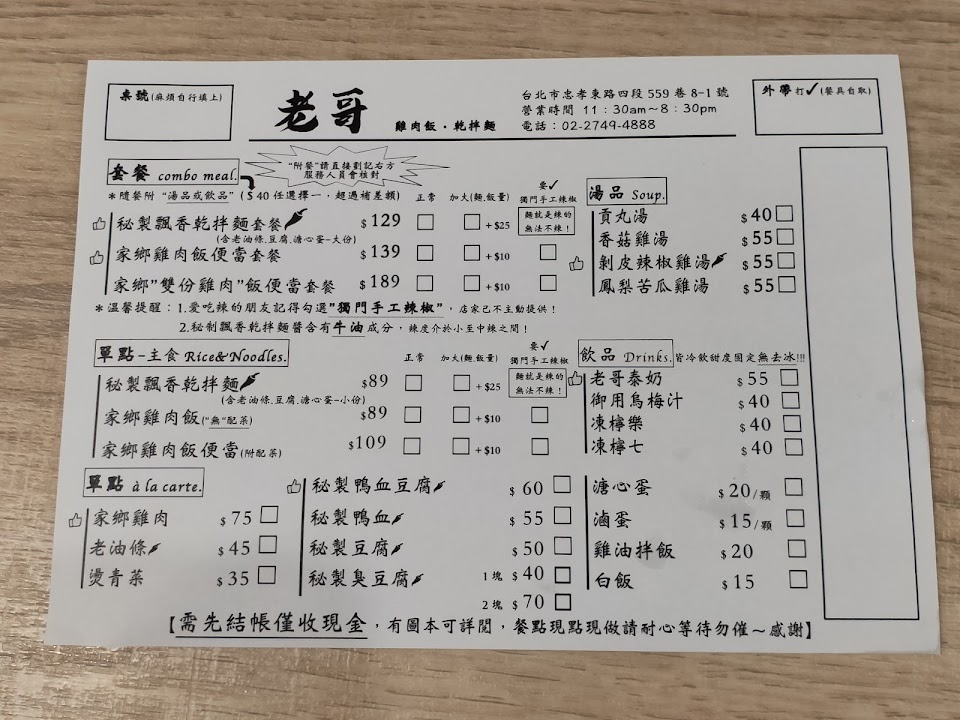 桌號(麻煩自行填上)
老哥
雞肉飯・乾拌麵
台北市忠孝東路四段 559 巷 8-1 號
營業時間 11:30am~8:30pm
電話:02-2749-4888
外帶打✓(餐具自取)
套餐 combo meal.
"附餐"請直接劃記右方
服務人員會核對
*隨餐附 "湯品或飲品" ($40 任選擇一,超過補差額) 正常 加大(麵.飯量) 要✓ 獨門手工辣椒
秘製飄香乾拌麵套餐 $129 □ □+$25 麵就是辣的 無法不辣!
(含老油條.豆腐.溏心蛋-大份)
家鄉雞肉飯便當套餐 $139 □ □+$10 □
家鄉"雙份雞肉"飯便當套餐 $189 □ □+$10 □
*溫馨提醒:1.愛吃辣的朋友記得勾選"獨門手工辣椒",店家已不主動提供!
2.秘制飄香乾拌麵醬含有牛油成分,辣度介於小至中辣之間!
湯品 Soup.
貢丸湯 $40 □
香菇雞湯 $55 □
剝皮辣椒雞湯 $55 □
鳳梨苦瓜雞湯 $55 □
單點-主食 Rice&Noodles. 正常 加大(麵.飯量) 要✓ 獨門手工辣椒
秘製飄香乾拌麵 $89 □ □+$25 麵就是辣的 無法不辣!
(含老油條.豆腐.溏心蛋-小份)
家鄉雞肉飯("無"配菜) $89 □ □+$10 □
家鄉雞肉飯便當(附配菜) $109 □ □+$10 □
飲品 Drinks. 皆冷飲甜度固定無去冰!!!
老哥泰奶 $55 □
御用烏梅汁 $40 □
凍檸樂 $40 □
凍檸七 $40 □
單點 à la carte.
家鄉雞肉 $75 □
老油條 $45 □
燙青菜 $35 □
秘製鴨血豆腐 $60 □
秘製鴨血 $55 □
秘製豆腐 $50 □
秘製臭豆腐 1塊 $40 □
2塊 $70 □
溏心蛋 $20/顆 □
滷蛋 $15/顆 □
雞油拌飯 $20 □
白飯 $15 □
【需先結帳僅收現金,有圖本可詳閱,餐點現點現做請耐心等待勿催~感謝】